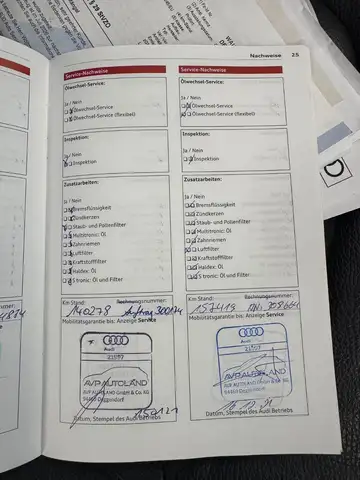 § 29 StVZO
Nachweise 25
Service-Nachweise
Ölwechsel-Service:
Ja / Nein
Ölwechsel-Service
Ölwechsel-Service (flexibel)
Inspektion:
Ja / Nein
Inspektion
Zusatzarbeiten:
Ja / Nein
Bremsflüssigkeit
Zündkerzen
Staub- und Pollenfilter
Multitronic: Öl
Zahnriemen
Luftfilter
Kraftstofffilter
Haldex: Öl
S tronic: Öl und Filter
Km Stand: Rechnungsnummer:
140278 Auftrag 300174
Mobilitätsgarantie bis: Anzeige Service
Audi
21957
AVP AUTOLAND
AVP AUTOLAND GmbH & Co. KG
94469 Deggendorf
150121
Datum, Stempel des Audi Betriebs
Service-Nachweise
Ölwechsel-Service:
Ja / Nein
Ölwechsel-Service
Ölwechsel-Service (flexibel)
Inspektion:
Ja / Nein
Inspektion
Zusatzarbeiten:
Ja / Nein
Bremsflüssigkeit
Zündkerzen
Staub- und Pollenfilter
Multitronic: Öl
Zahnriemen
Luftfilter
Kraftstofffilter
Haldex: Öl
S tronic: Öl und Filter
Km Stand: Rechnungsnummer:
157419
Mobilitätsgarantie bis: Anzeige Service
Audi
21957
AVP AUTOLAND
AVP AUTOLAND GmbH & Co. KG
94469 Deggendorf
Datum, Stempel des Audi Betriebs